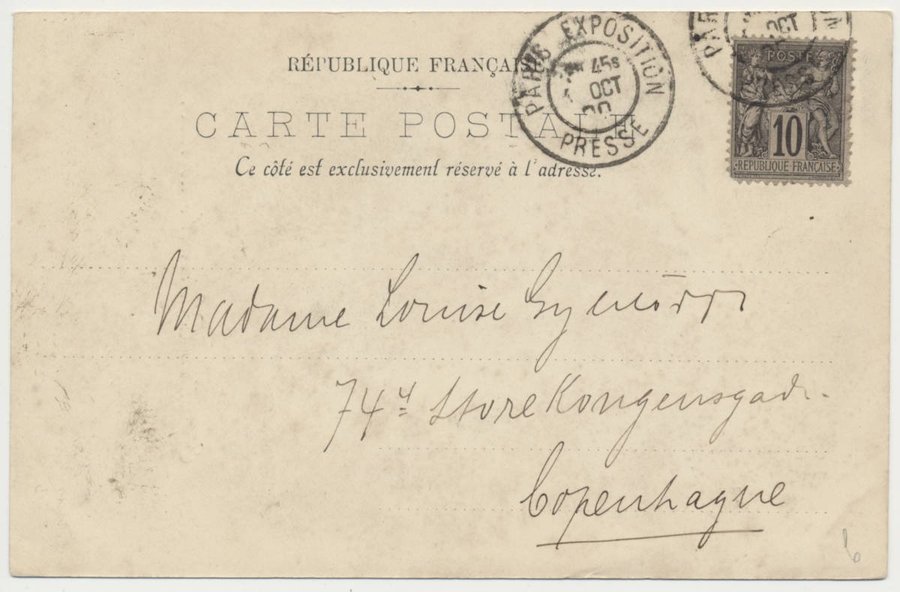 RÉPUBLIQUE FRANÇAISE
CARTE POSTALE
Ce côté est exclusivement réservé à l'adresse.
PARIS EXPOSITION
45s
OCT
00
PRESSE
OCT
POSTE
10
RÉPUBLIQUE FRANÇAISE
Madame Louise
74 Store Kongensgad.
Copenhague
6